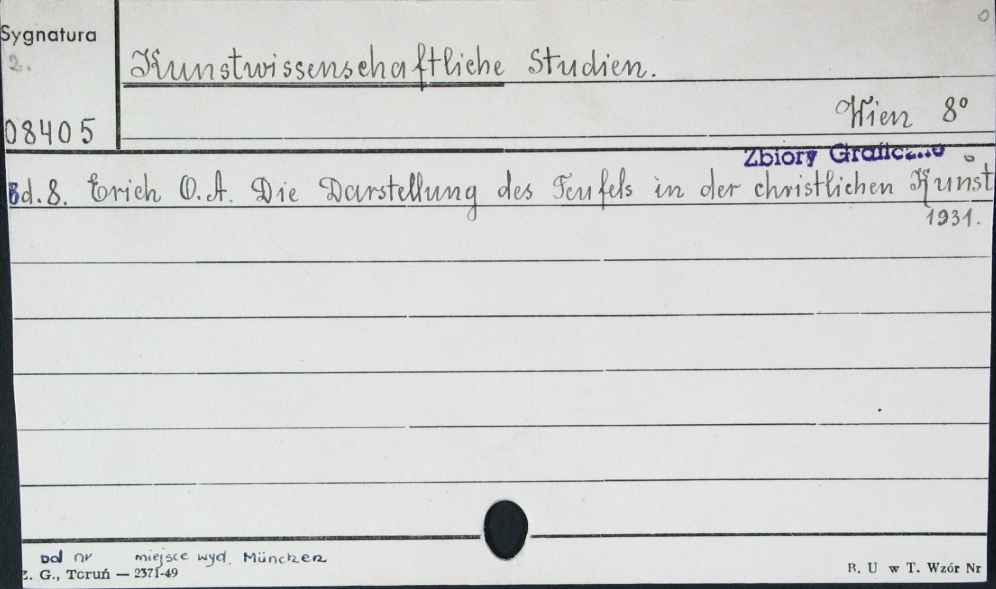 Sygnatura
2.
08405
Kunstwissenschaftliche Studien.
Wien 8°
Zbiory Graficzne
Bd. 8. Erich O. A. Die Darstellung des Teufels in der christlichen Kunst
1931.
od nr miejsce wyd. München
Z. G., Toruń — 2371-49
B. U w T. Wzór Nr